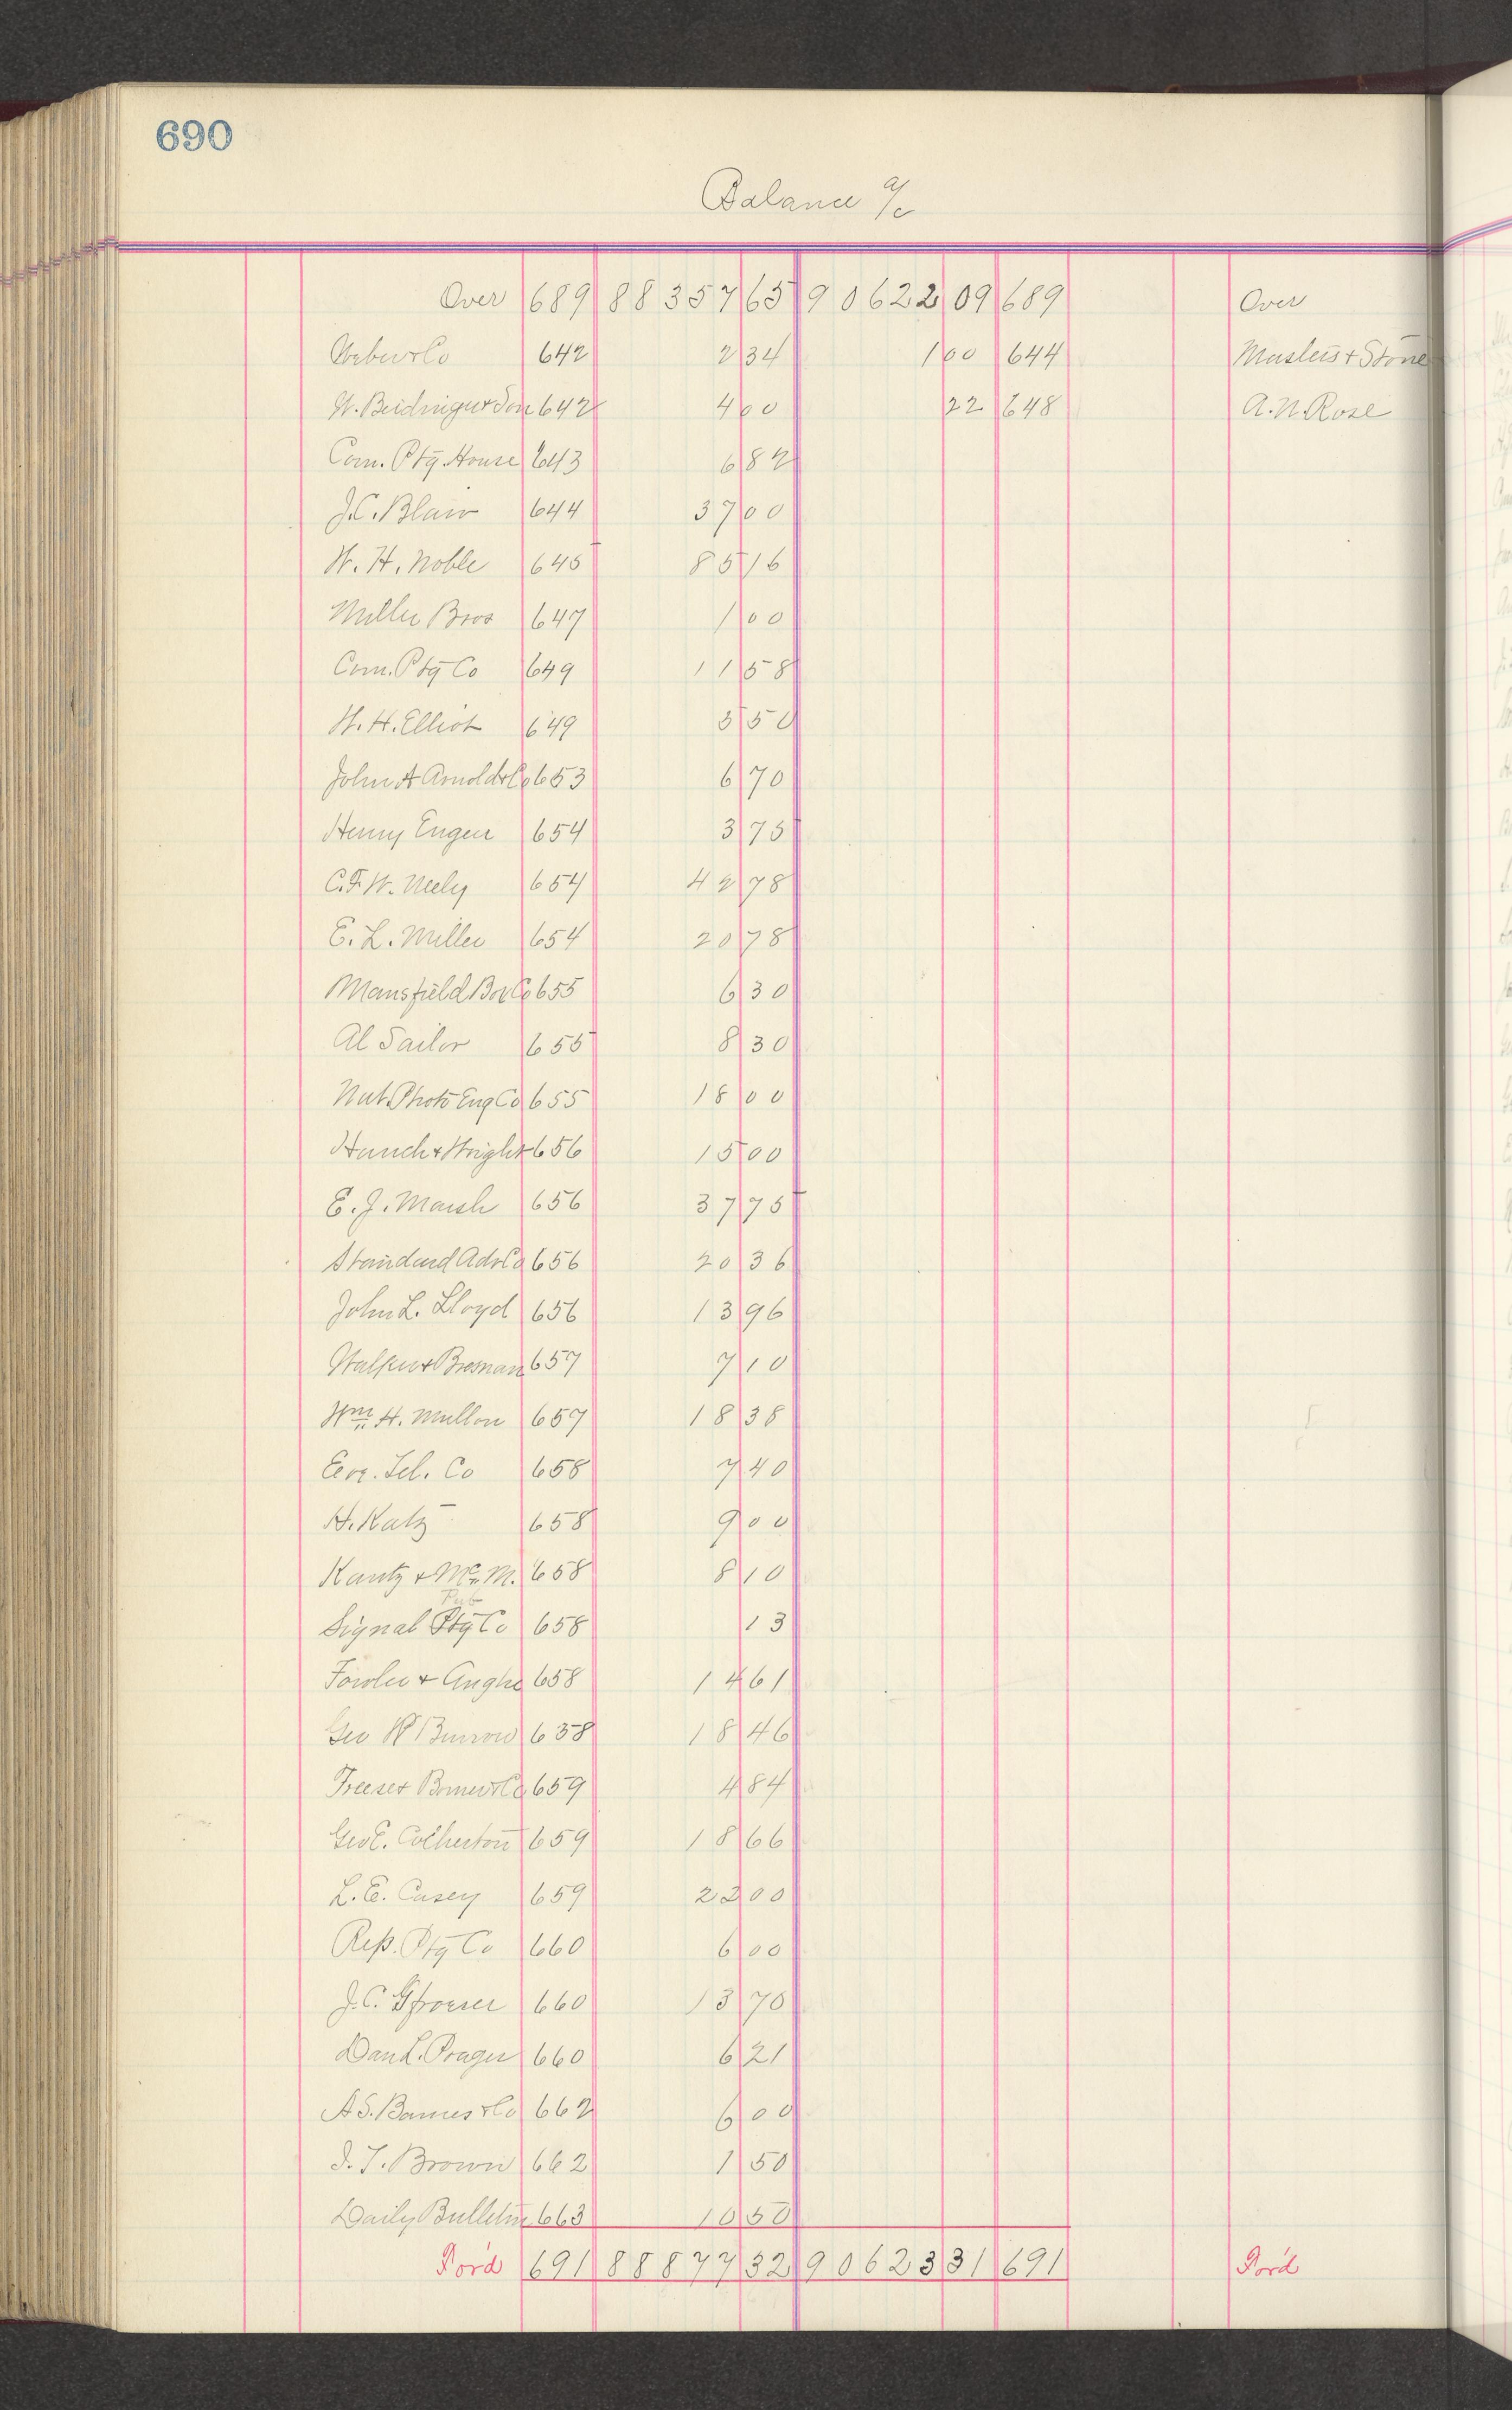 690
Balance a/c
Over 689 88357 65 90622 09 689 Over
Weber & Co 642 2 34 1 00 644 Masters & Stone
W. Beidinger & Son 642 4 00 22 648 A. N. Rose
Com. Ptg. House 643 6 82
J. C. Blair 644 37 00
W. H. Noble 645 85 16
Miller Bros 647 1 00
Com. Ptg Co 649 11 58
W. H. Elliot 649 5 50
John A Arnold & Co 653 6 70
Henry Enger 654 3 75
C. F. W. Neely 654 42 78
E. L. Miller 654 20 78
Mansfield Box Co 655 6 30
Al Sailor 655 8 30
Nat. Photo Eng Co 655 18 00
& Wright 656 15 00
E. J. Marsh 656 37 75
Standard Adv Co 656 20 36
John L. Lloyd 656 13 96
Walker & Bresnan 657 7 10
Wm H. Mullon 657 18 38
Tel. Co 658 7 40
H. Katz 658 9 00
Kautz & McM. 658 8 10
Pub
Signal Ptg Co 658 13
Fowler & 658 14 61
Geo W Burrow 658 18 46
Freeser 659 4 84
Geo E. 659 18 66
L. E. Casey 659 22 00
Rep. Ptg Co 660 6 00
J. C. Gfroerer 660 13 70
Dan L. Prager 660 6 21
A S. Barnes & Co 662 6 00
I. T. Brown 662 1 50
Daily Bulletin 663 10 50
For'd 691 88877 32 90623 31 691 For'd